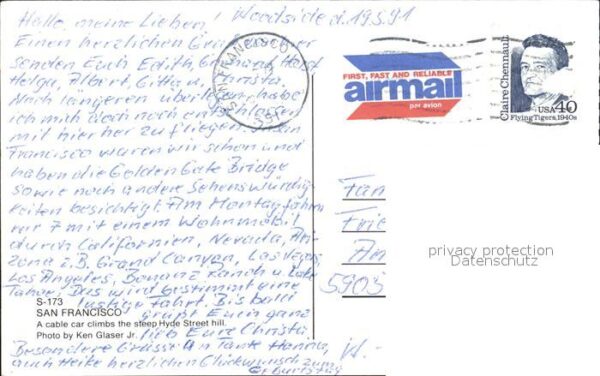 Hallo, meine Lieben! Woodside d. 19.5.91
Einen herzlichen Gruß
senden Euch Edith, Gerhard, Horst
Helga, Albert, Christa.
Nach längeren überlegen habe
ich mich doch noch entschlossen
mit hierher zu fliegen. In San
Francisco waren wir schon und
haben die Golden Gate Bridge
sowie noch andere Sehenswürdig-
keiten besichtigt. Am Montag fahren
wir 7 mit einem Wohnmobil
durch Californien, Nevada, Ari-
zona z.B. Grand Canyon, Las Vegas,
Los Angeles, Bonanza Ranch u. Lake
Tahoe. Das wird bestimmt eine
lustige Fahrt. Bis bald
grüßt Euch ganz
lieb Eure Christa
Besondere Grüsse an Tante Hanna,
auch Heike herzlichen Glückwunsch zum
Geburtstag
S-173
SAN FRANCISCO
A cable car climbs the steep Hyde Street hill.
Photo by Ken Glaser Jr.
SAN FRANCISCO
FIRST, FAST AND RELIABLE
airmail
par avion
Claire Chennault
USA 40
Flying Tigers, 1940s
Fam
Frie
An
5903
W.-
privacy protection
Datenschutz